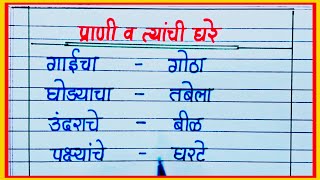 प्राणी व त्यांची घरे
गाईचा - गोठा
घोड्याचा - तबेला
उंदराचे - बीळ
पक्ष्यांचे - घरटे